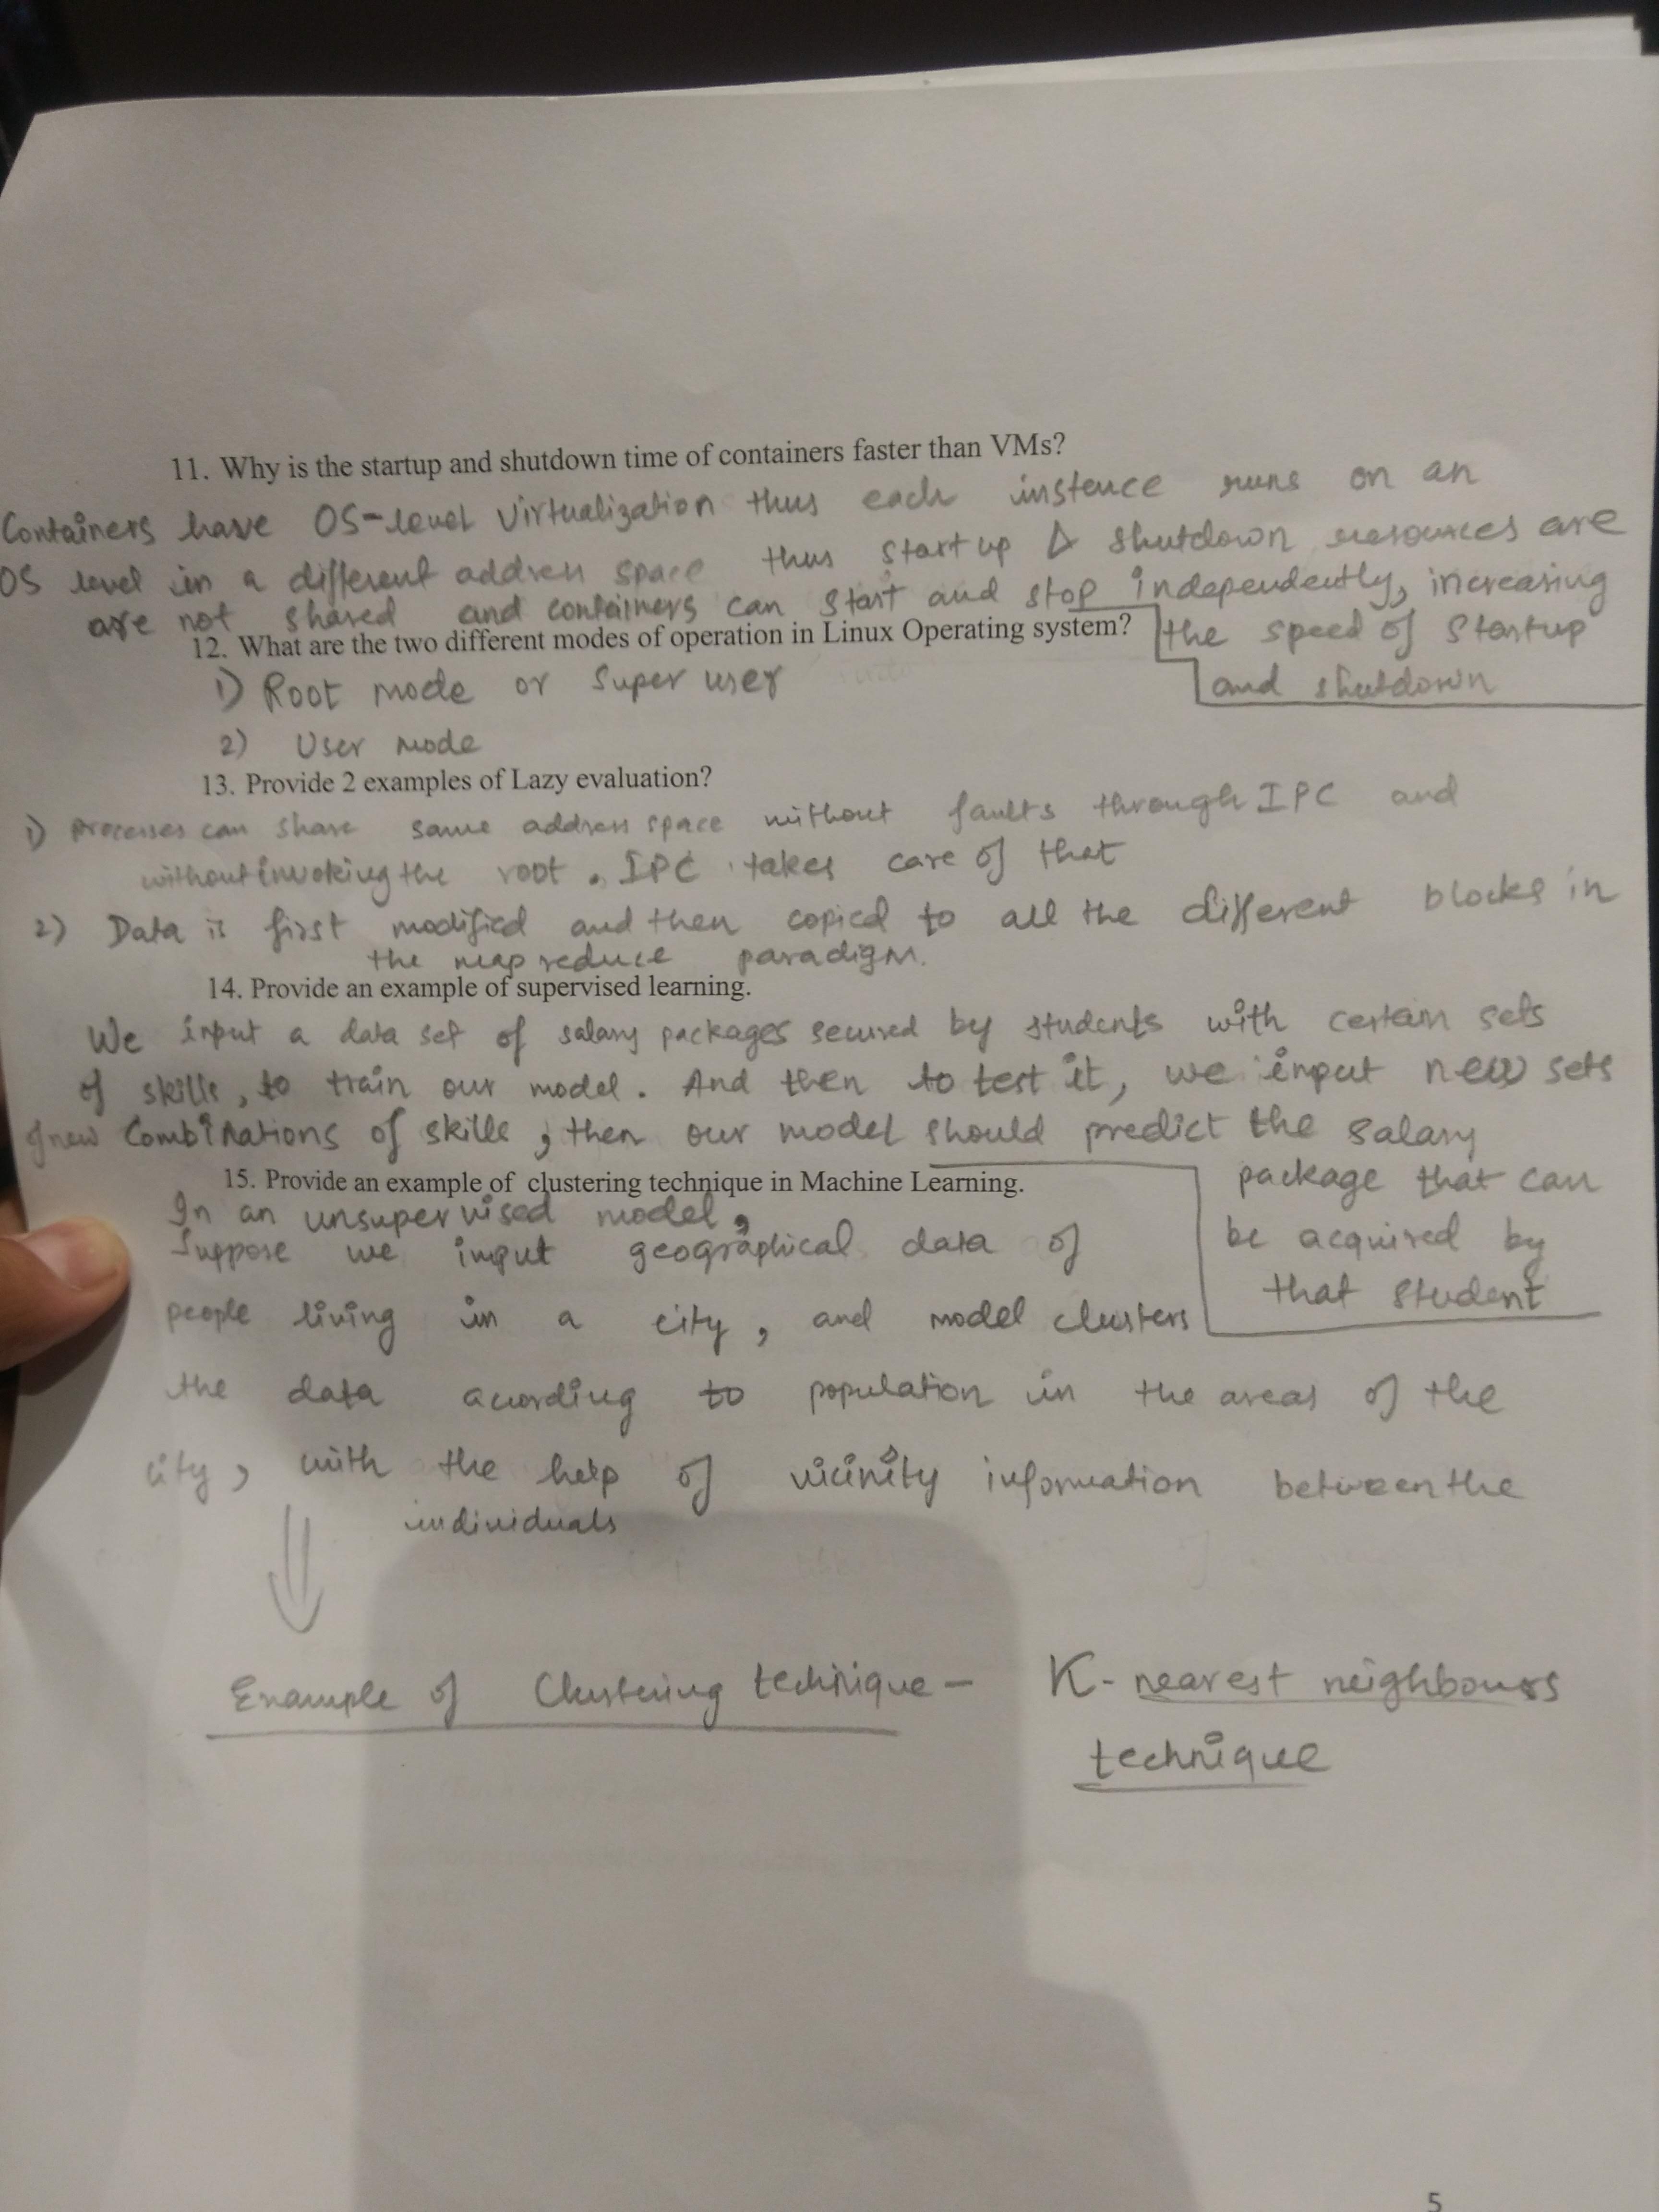 11. Why is the startup and shutdown time of containers faster than VMs?
Containers have OS-level Virtualization thus each instence runs on an
OS level in a different address space thus startup & shutdown resources are
are not shared and containers can start and stop independently, increasing
the speed of startup
and shutdown
12. What are the two different modes of operation in Linux Operating system?
1) Root mode or Super user
2) User mode
13. Provide 2 examples of Lazy evaluation?
1) processes can share same address space without faults through IPC and
without invoking the root. IPC takes care of that
2) Data is first modified and then copied to all the different blocks in
the map reduce paradigm.
14. Provide an example of supervised learning.
We input a data set of salary packages secured by students with certain sets
of skills, to train our model. And then to test it, we input new sets
of new combinations of skills, then our model should predict the salary
package that can
be acquired by
that student
15. Provide an example of clustering technique in Machine Learning.
In an unsupervised model,
Suppose we input geographical data of
people living in a city, and model clusters
the data acording to population in the areas of the
city, with the help of vicinity information between the
individuals
Example of Clustering technique - K-nearest neighbours
technique
5